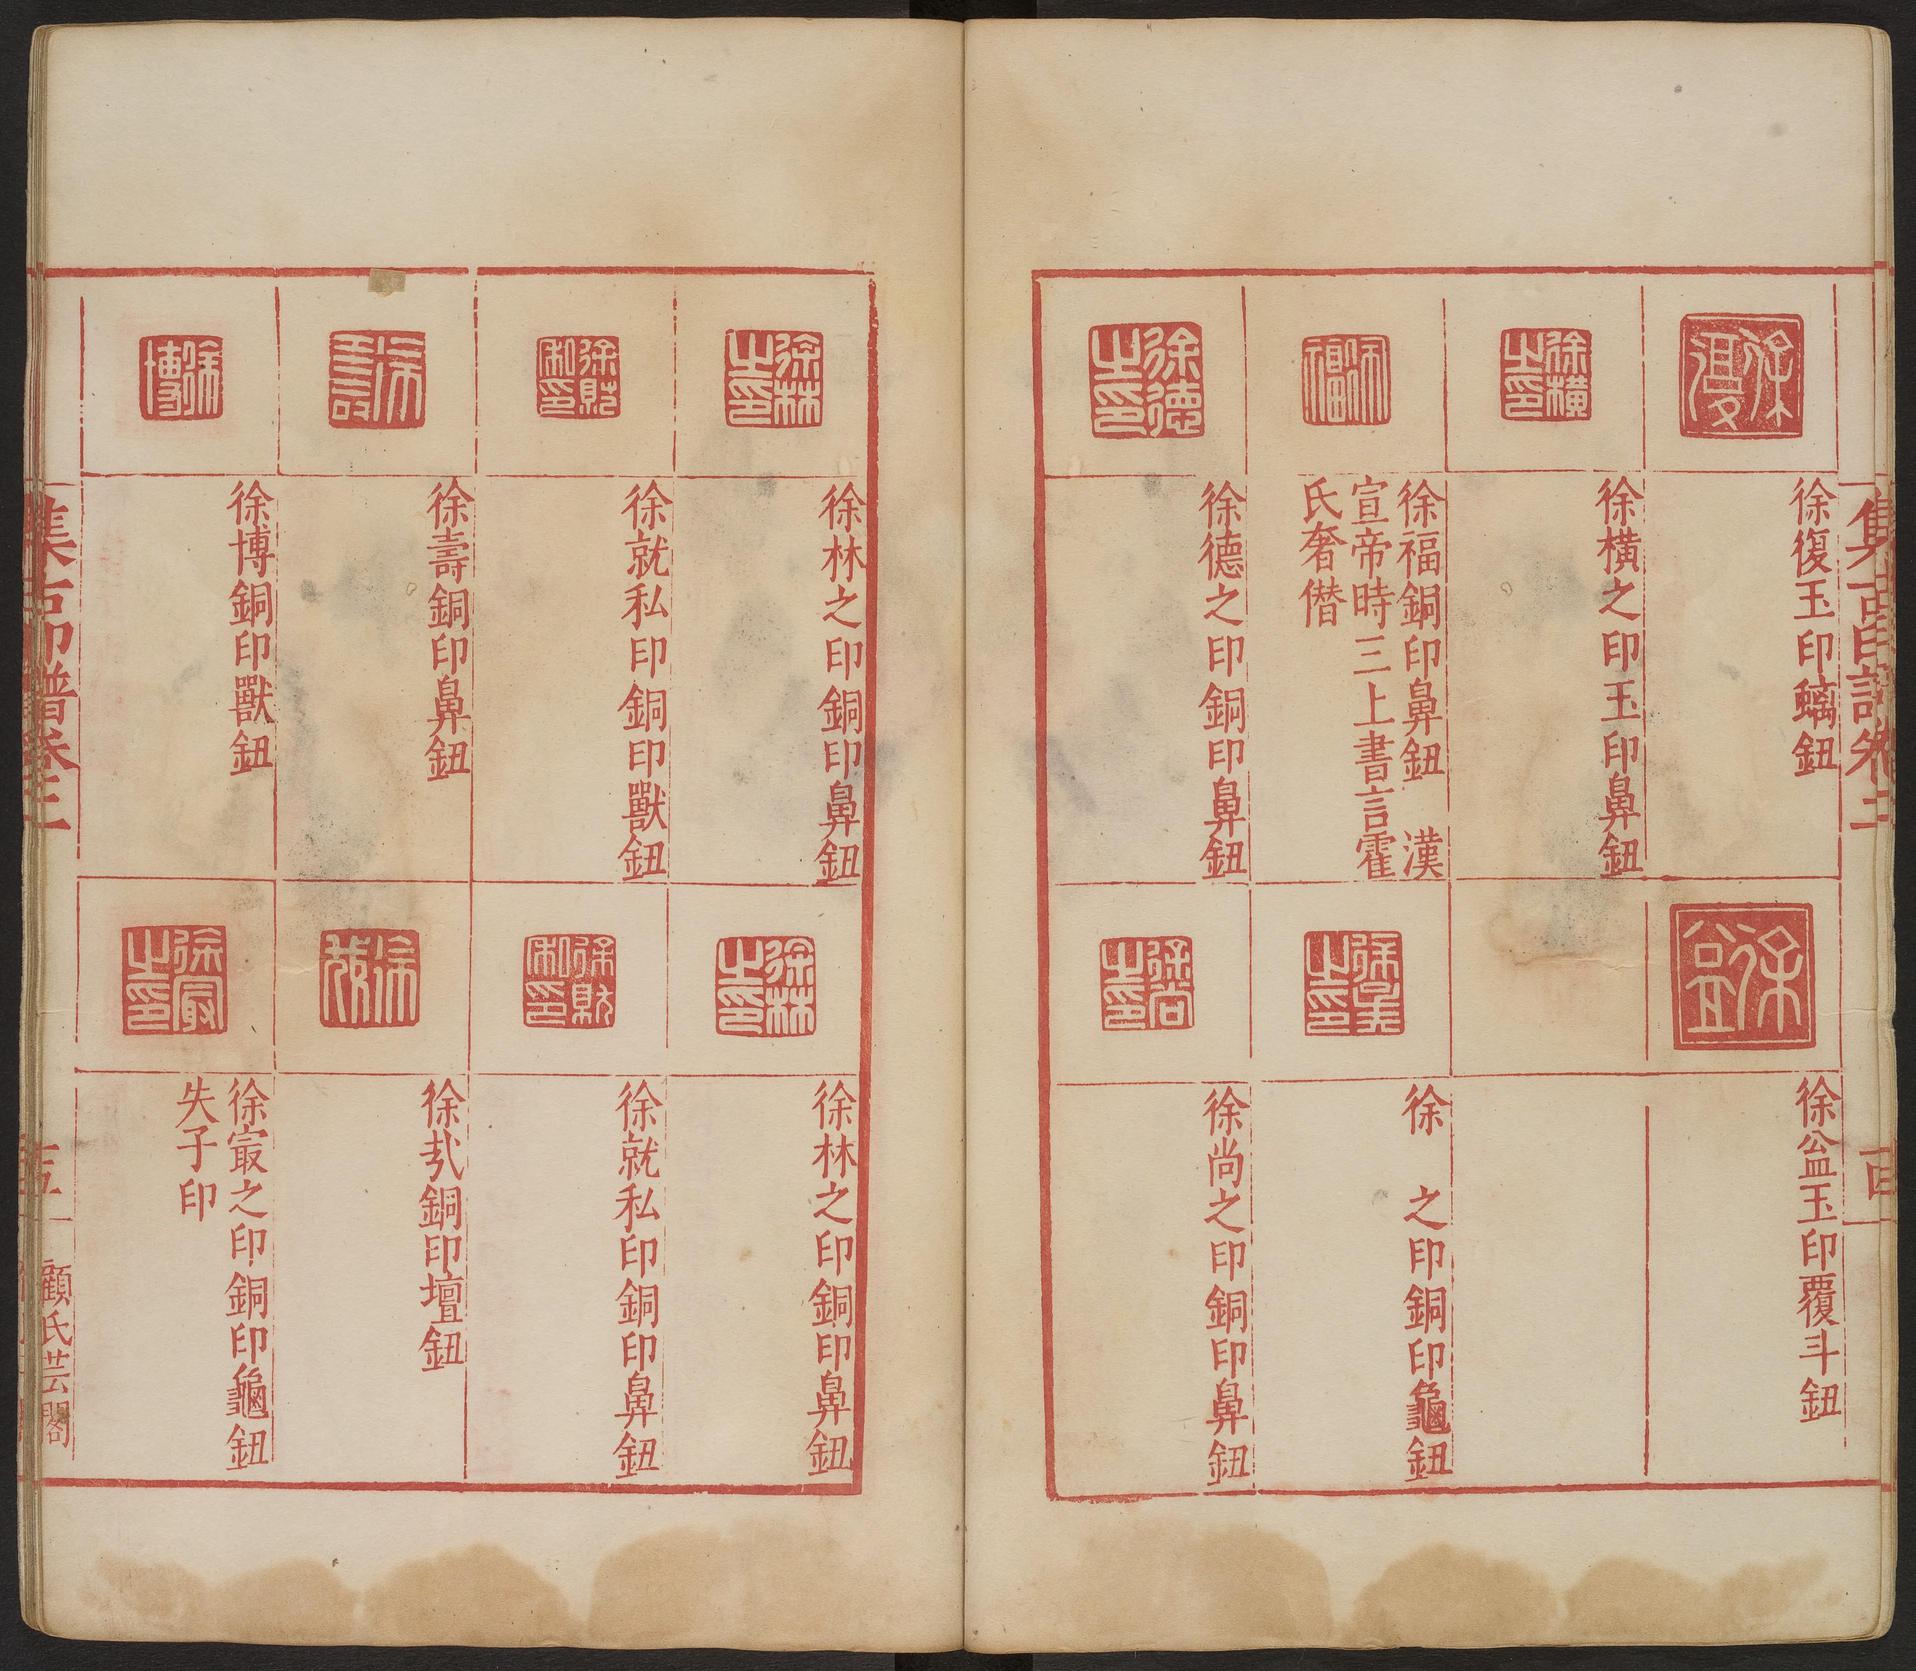 徐復玉印螭鈕
徐橫之印玉印鼻鈕
徐福銅印鼻鈕　漢
宣帝時三上書言霍
氏奢僭
徐德之印銅印鼻鈕
徐益玉印覆斗鈕
徐　之印銅印龜鈕
徐尚之印銅印鼻鈕
徐林之印銅印鼻鈕
徐就私印銅印獸鈕
徐壽銅印鼻鈕
徐博銅印獸鈕
徐林之印銅印鼻鈕
徐就私印銅印鼻鈕
徐㢤銅印壇鈕
徐㝡之印銅印龜鈕
失子印
集古印譜卷三
顧氏芸閣